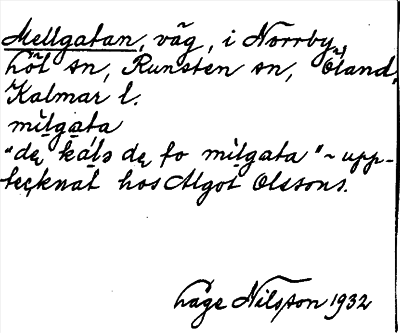 Mellgatan, väg, i Norrby,
höl sn, Runsten sn, Öland,
Kalmar l.
mìlgàta
"dę kálą dę fo mìlgata" ~ upp-
tecknat hos Algot Olssons.
Låge Nilsson 1932